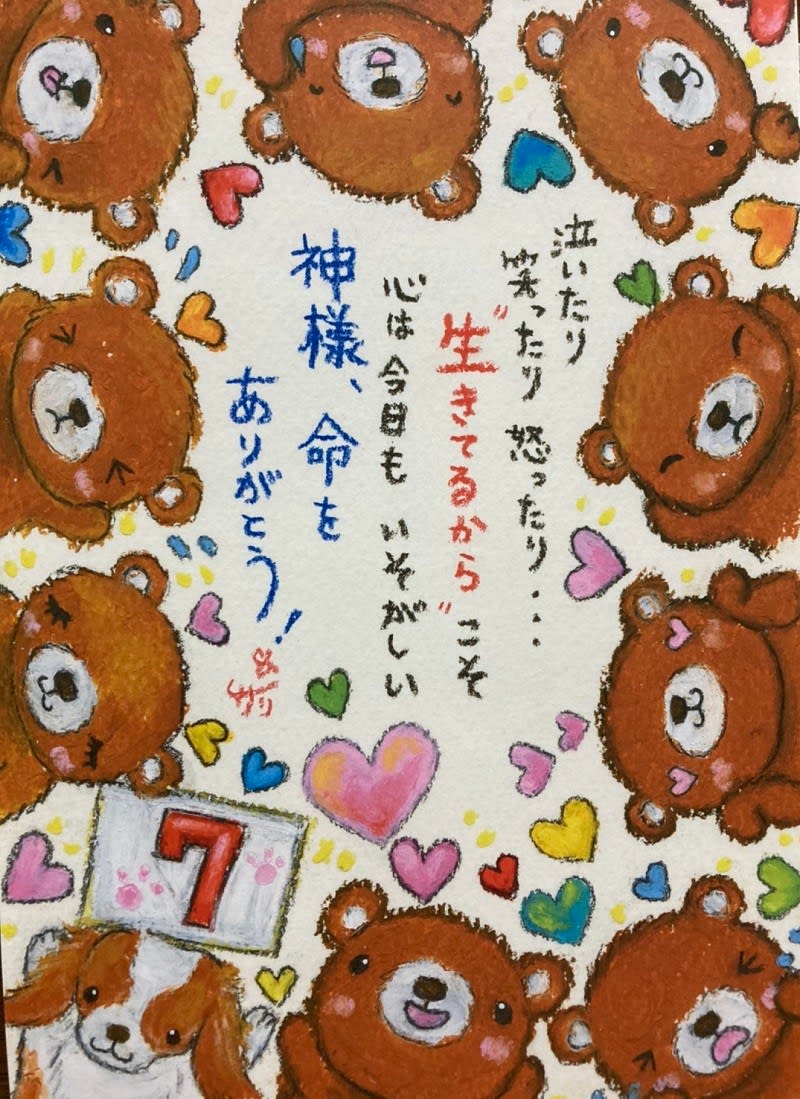 泣いたり
笑ったり 怒ったり・・・
“生きてるから”こそ
心は今日も いそがしい
神様、命を
ありがとう！
7